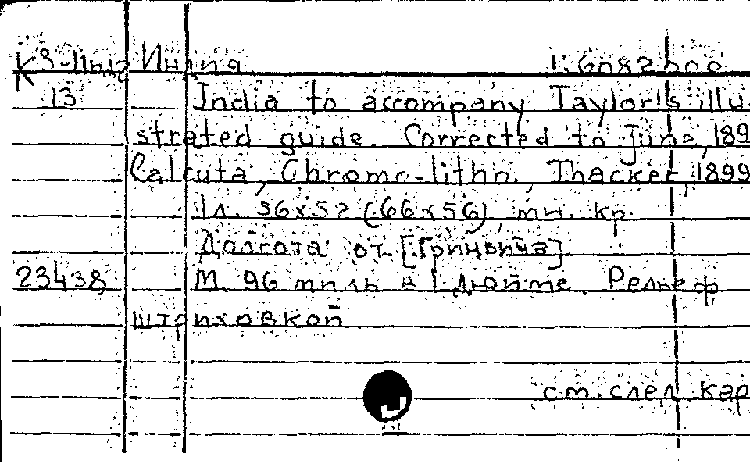 К3-Инд Индия 1:6082000
13 India to accompany Taylor's illu
strated guide. Corrected to June, 189
Calcuta, Chromo-litho, Thacker, 1899
1л. 56х52 (66х56), мн. кр.
Долгота от [Гринвича]
23438 М. 96 миль в 1 дюйме. Рельеф
штриховкой.
см. след. кар